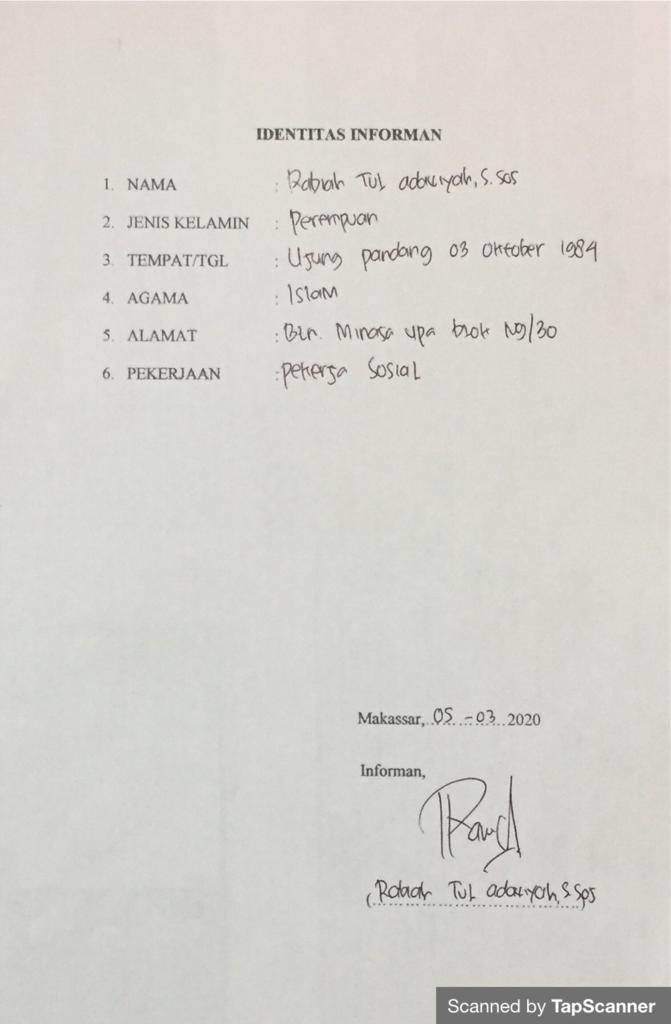 IDENTITAS INFORMAN
1. NAMA : Rabiah Tul adawiyah, S.Sos
2. JENIS KELAMIN : Perempuan
3. TEMPAT/TGL : Ujung pandang 03 Oktober 1984
4. AGAMA : Islam
5. ALAMAT : Btn. Minasa upa blok N9/30
6. PEKERJAAN : pekerja Sosial
Makassar, 05 - 03 2020
Informan,
(Rabiah Tul adawiyah, S.Sos
Scanned by TapScanner